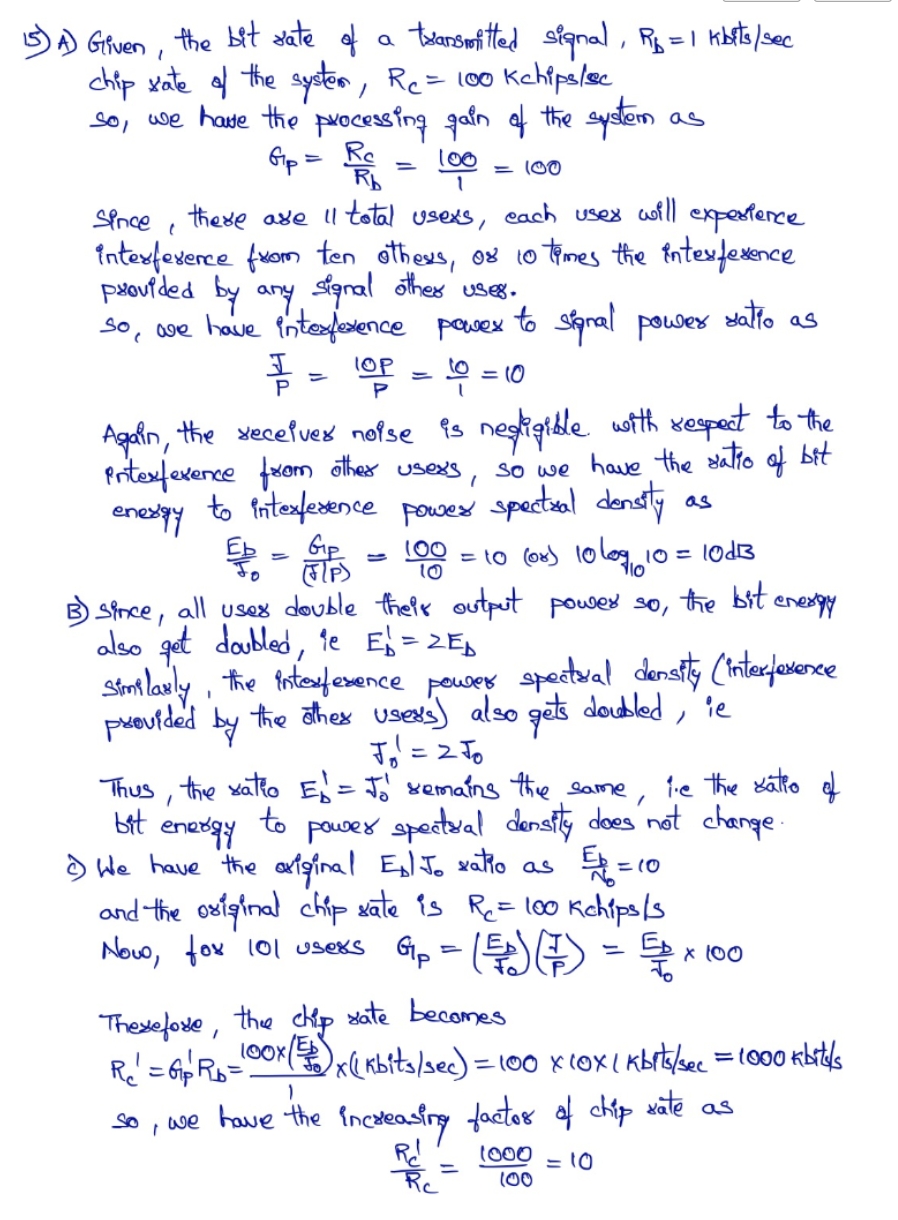 15) A) Given, the bit rate of a transmitted signal, R_b = 1 Kbits/sec
chip rate of the system, R_c = 100 Kchips/sec
so, we have the processing gain of the system as
G_p = R_c/R_b = 100/1 = 100
Since, there are 11 total users, each user will experience
interference from ten others, or 10 times the interference
provided by any signal other user.
So, we have interference power to signal power ratio as
J/P = 10P/P = 10/1 = 10
Again, the receiver noise is negligible with respect to the
interference from other users, so we have the ratio of bit
energy to interference power spectral density as
E_b/J_0 = G_p/(J/P) = 100/10 = 10 (or) 10 log_10 10 = 10dB
B) Since, all user double their output power so, the bit energy
also get doubled, ie E_b' = 2E_b
Similarly, the interference power spectral density (interference
provided by the other users) also gets doubled, ie
J_0' = 2J_0
Thus, the ratio E_b' = J_0' remains the same, i.e the ratio of
bit energy to power spectral density does not change.
c) We have the original E_b/J_0 ratio as E_b/N_0 = 10
and the original chip rate is R_c = 100 Kchips/s
Now, for 101 users G_p = (E_b/J_0)(J/P) = E_b/J_0 × 100
Therefore, the chip rate becomes
R_c' = G_p' R_b = 100×(E_b/J_0)/1 ×(1 Kbits/sec) = 100 × 10 × 1 Kbits/sec = 1000 Kbits/s
so, we have the increasing factor of chip rate as
R_c'/R_c = 1000/100 = 10